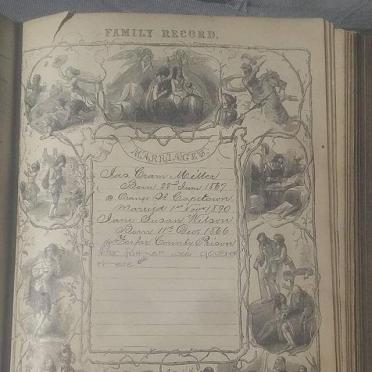 FAMILY RECORD.
MARRIAGES.
Jas Cram Miller
Born 28th June 1867
@ Orange St Capetown
Married 1st Novr 1890
Jane Susan Wilson
Born 11th Decr 1866
@ Forfar County Prison